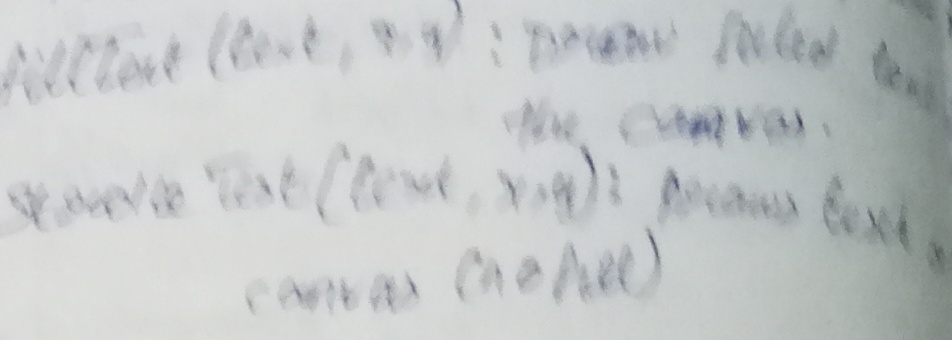 fillText (text, x,y) : Draws filled text
the canvas.
stroke Text (text, x,y) : Draws text
canvas (no fill)